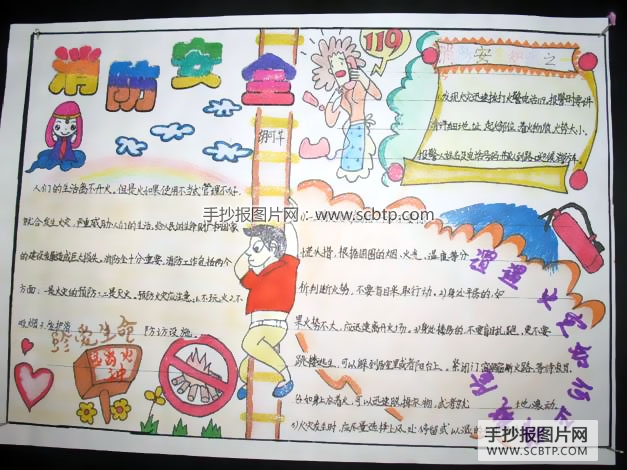 消防安全
119
安
之一
1.发现火灾迅速拨打火警电话119,报警时要讲
清详细地址,起火部位,着火物质,火势大小,
报警人姓名及电话号码并派人到路口迎候消防车。
人们的生活离不开火。但是火如果使用不当或管理不好,
就会发生火灾,严重威胁人们的生活,给人民的生命财产和国家
的建设发展造成巨大损失。消防安全十分重要,消防工作包括两个
方面:一是火灾的预防,二是灭火。预防火灾应注意:1.不玩火2.不
吸烟3.爱护消
防设施。
手抄报图片网:www.scbtp.com
珍爱生命
遭遇火灾如何
逃火措,根据周围的烟、火光、温度等分
析判断火势,不要盲目采取行动。2)身处平房的,如
果火势不大,应迅速离开火场。3)身处楼房的,不要盲目乱跑,更不要
跳楼逃生,可以躲到居室里或者阳台上。紧闭门窗隔断火路,等待救援。
4)如身上着火,可以迅速脱掉衣物,或者就
地滚动。
5)火灾发生时,应尽量选择
手抄报图片网
SCBTP.COM